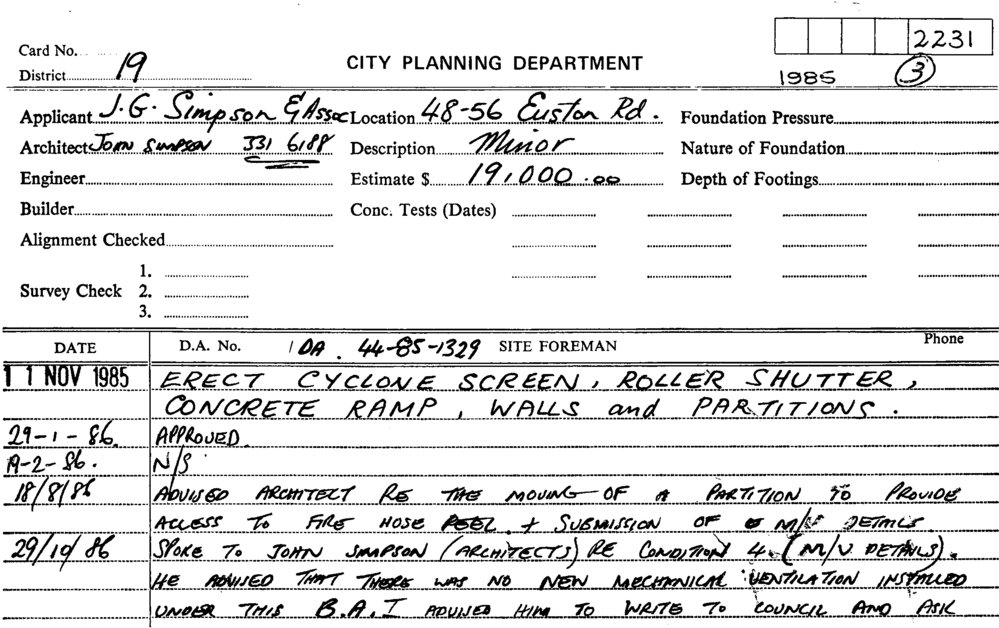 2231
Card No.
District 19
CITY PLANNING DEPARTMENT
1985 3
Applicant J.G. Simpson & Assoc Location 48-56 Euston Rd. Foundation Pressure
Architect John Simpson 331 6188 Description Minor Nature of Foundation
Engineer Estimate $ 19,000.00 Depth of Footings
Builder Conc. Tests (Dates)
Alignment Checked
1.
Survey Check 2.
3.
DATE D.A. No. DA. 44-85-1329 SITE FOREMAN Phone
11 NOV 1985 ERECT CYCLONE SCREEN, ROLLER SHUTTER,
CONCRETE RAMP, WALLS and PARTITIONS.
29-1-86. APPROVED.
19-2-86. N/S
18/8/86 ADVISED ARCHITECT RE THE MOVING OF A PARTITION TO PROVIDE
ACCESS TO FIRE HOSE REEL + SUBMISSION OF M/V DETAILS
29/10/86 SPOKE TO JOHN SIMPSON (ARCHITECTS) RE CONDITION 4. (M/V DETAILS).
HE ADVISED THAT THERE WAS NO NEW MECHANICAL VENTILATION INSTALLED
UNDER THIS B.A. I ADVISED HIM TO WRITE TO COUNCIL AND ASK